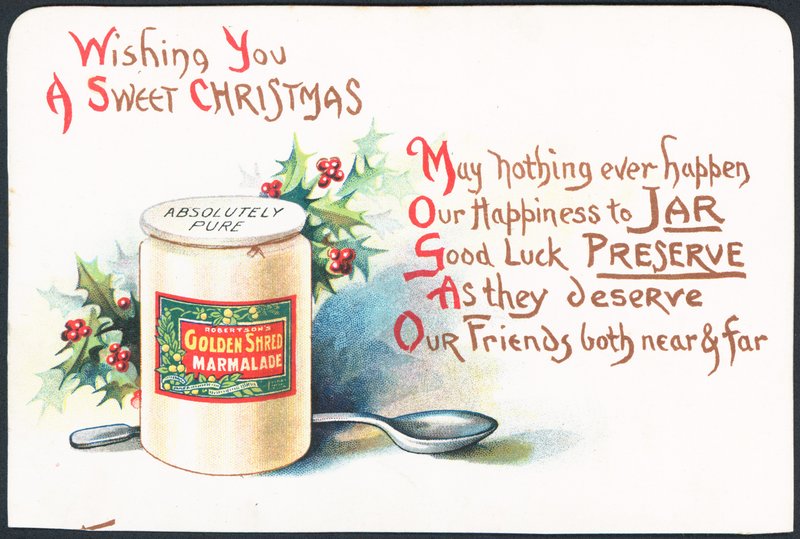 Wishing You
A Sweet Christmas
May nothing ever happen
Our Happiness to JAR
Good Luck PRESERVE
As they deserve
Our Friends both near & far
ABSOLUTELY
PURE
ROBERTSON'S
GOLDEN SHRED
MARMALADE